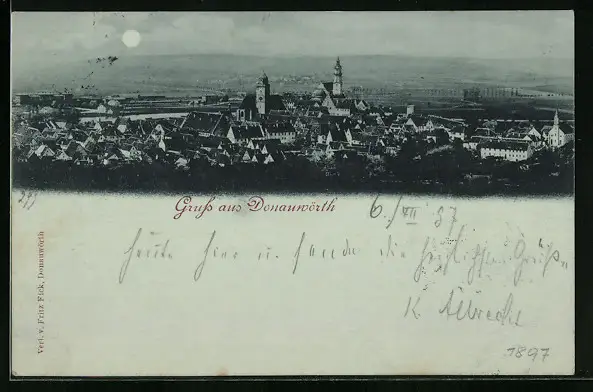 Gruß aus Donauwörth
6./VII 97
Heute hier u. sende die herzlichsten Grüße
K. Albrecht
1897
Verl. v. Fritz Fick, Donauwörth